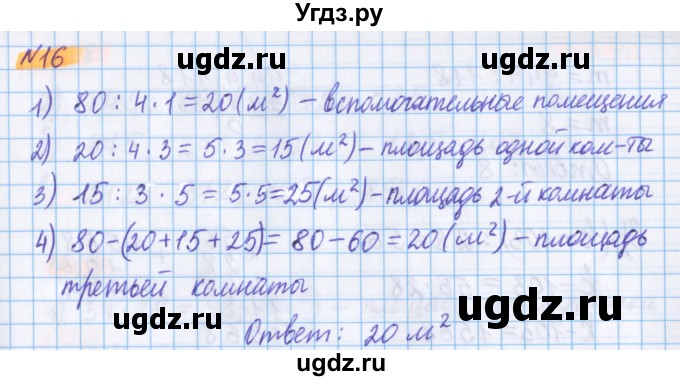 Угдз.ру
№16
ugdz.ru ugdz.ru
1) 80 : 4 · 1 = 20 (м²) – вспомогательные помещения
ugdz.ru
2) 20 : 4 · 3 = 5 · 3 = 15 (м²) – площадь одной ком-ты
3) 15 : 3 · 5 = 5·5=25(м²) – площадь 2-й комнаты
ugdz.ru ugdz.ru
4) 80–(20+15+25)= 80–60=20(м²) – площадь
третьей комнаты
ugdz.ru
Ответ: 20 м²
ugdz.ru